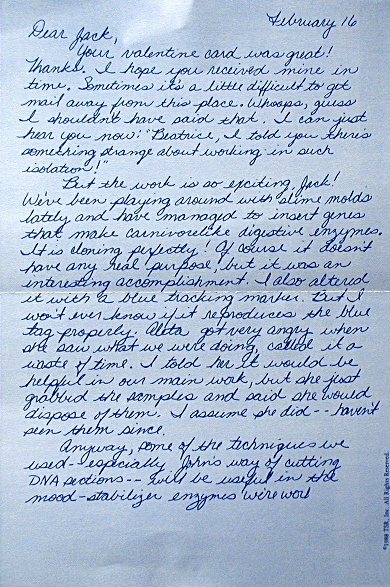 February 16
Dear Jack,
Your valentine card was great!
Thanks. I hope you received mine in
time. Sometimes it's a little difficult to get
mail away from this place. Whoops, guess
I shouldn't have said that. I can just
hear you now: "Beatrice, I told you there's
something strange about working in such
isolation!"
But the work is so exciting, Jack!
We've been playing around with slime molds
lately and have managed to insert genes
that make carnivorelike digestive enzymes.
It is cloning perfectly! Of course it doesn't
have any real purpose, but it was an
interesting accomplishment. I also altered
it with a blue tracking marker. But I
won't ever know if it reproduces the blue
tag properly. Aleta got very angry when
she saw what we were doing, called it a
waste of time. I told her it would be
helpful in our main work, but she just
grabbed the samples and said she would
dispose of them. I assume she did -- haven't
seen them since.
Anyway, some of the techniques we
used--especially John's way of cutting
DNA sections -- will be useful in the
mood-stabilizer enzymes we're wor
©1988 TSR, Inc. All Rights Reserved.